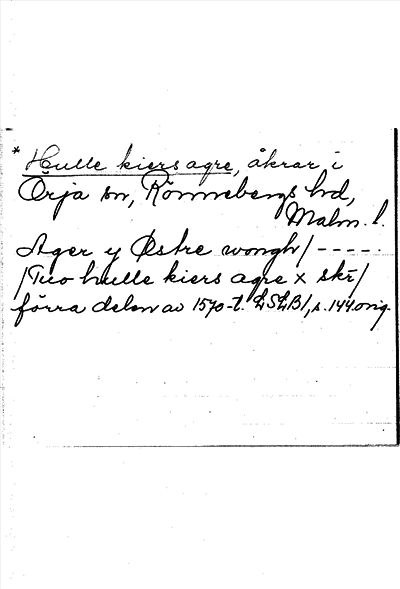 * Hulle kiers agre, åkrar i
Örja sn, Rönnebergs hd,
Malm. l.
Ager y Østre wongh/ - - - - .
/Tuo hulle kiers agre x skī/
förra delen av 1570-t. LSLB/, s. 144 orig.